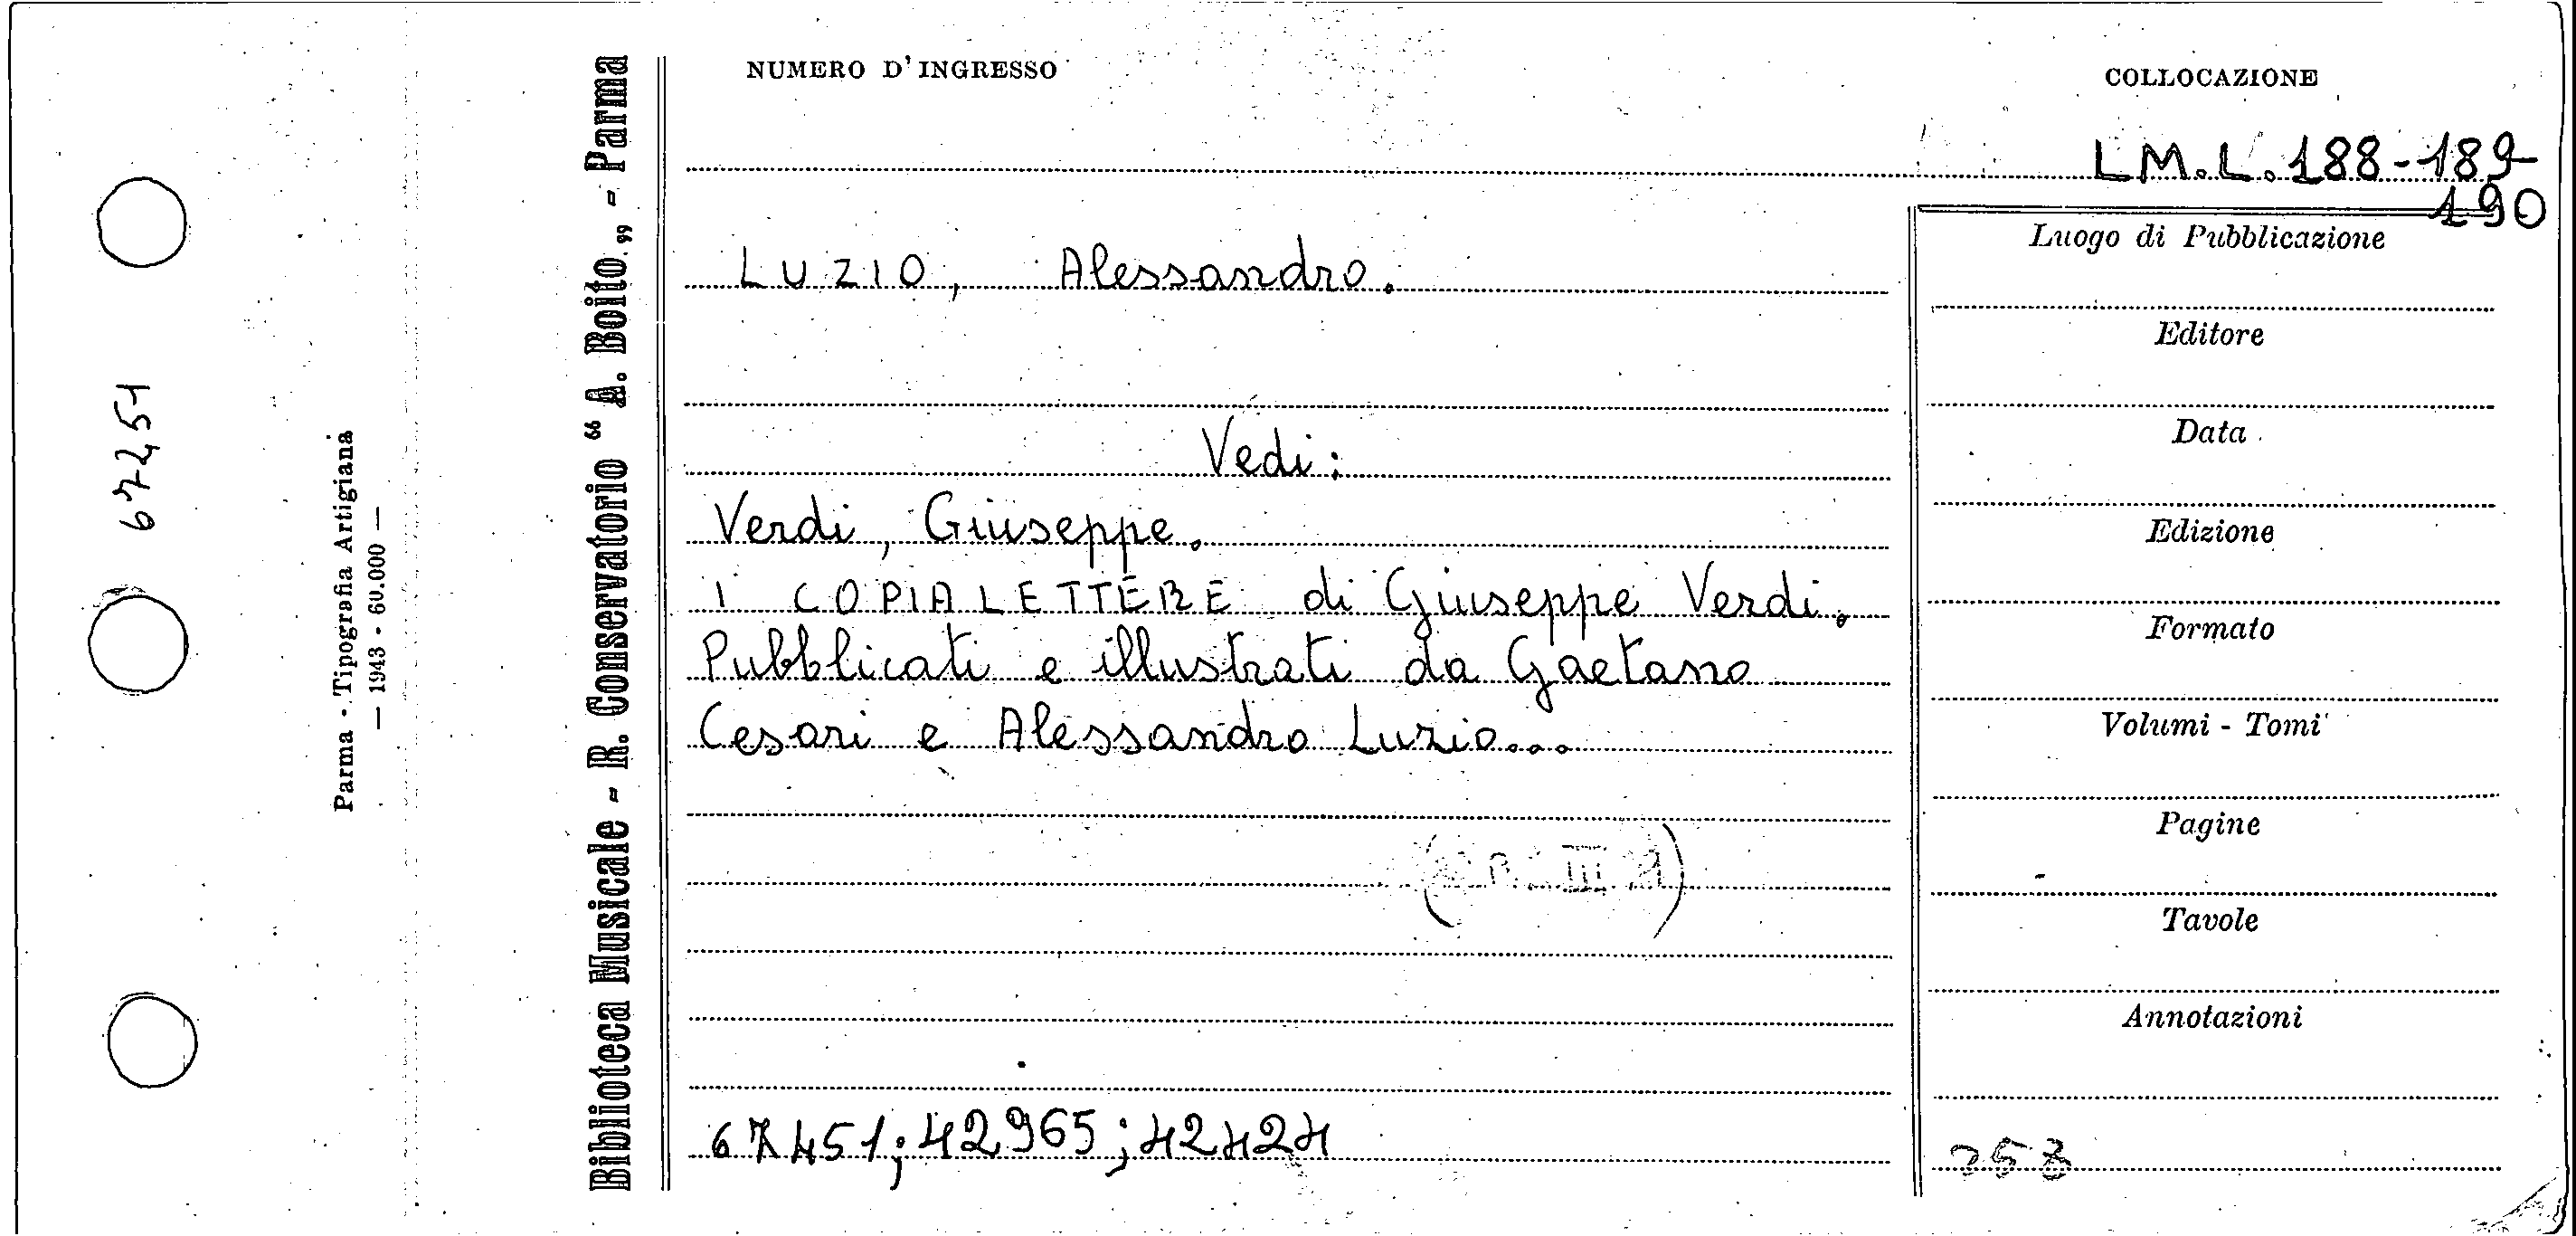 NUMERO D'INGRESSO
COLLOCAZIONE
LM.L.188-189-
190
LUZIO, Alessandro.
Vedi:
Verdi, Giuseppe.
I COPIALETTERE di Giuseppe Verdi.
Pubblicati e illustrati da Gaetano
Cesari e Alessandro Luzio...
67451; 42965; 42424
Luogo di Pubblicazione
Editore
Data
Edizione
Formato
Volumi - Tomi
Pagine
Tavole
Annotazioni
Biblioteca Musicale - R. Conservatorio “ A. Boito „ - Parma
Parma - Tipografia Artigiana
— 1943 - 60.000 —